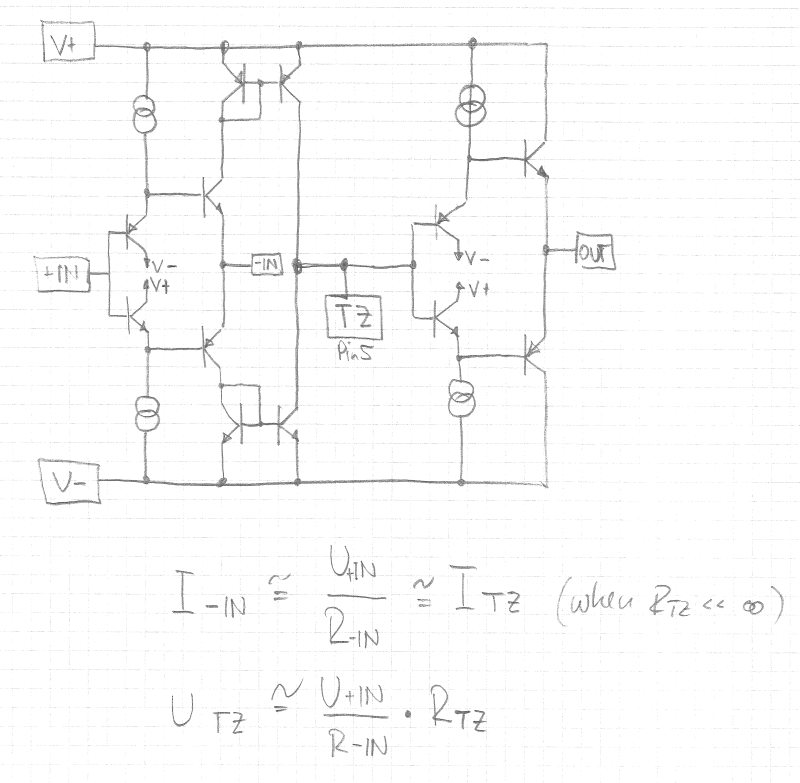 V+
+IN
V-
V+
-IN
TZ
Pin5
V-
V+
OUT
V-
I -IN ≅ U+IN / R-IN ≅ I TZ (when RTZ << ∞)
U TZ ≅ U+IN / R-IN · RTZ